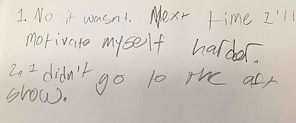 1. No it wasent. Next time I'll
motivate myself harder.
2. I didn't go to the art
show.